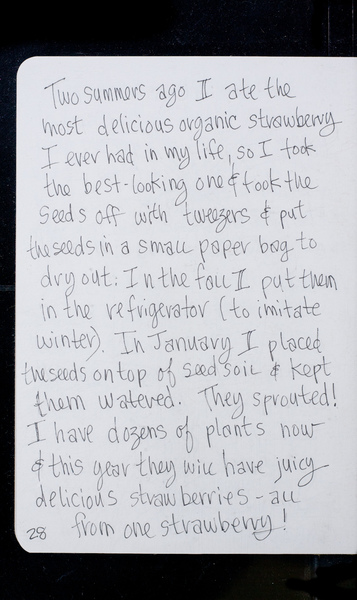 Two summers ago I ate the
most delicious organic strawberry
I ever had in my life, so I took
the best-looking one & took the
seeds off with tweezers & put
the seeds in a small paper bag to
dry out. In the fall I put them
in the refrigerator (to imitate
winter). In January I placed
the seeds on top of seed soil & kept
them watered. They sprouted!
I have dozens of plants now
& this year they will have juicy
delicious strawberries - all
from one strawberry!
28